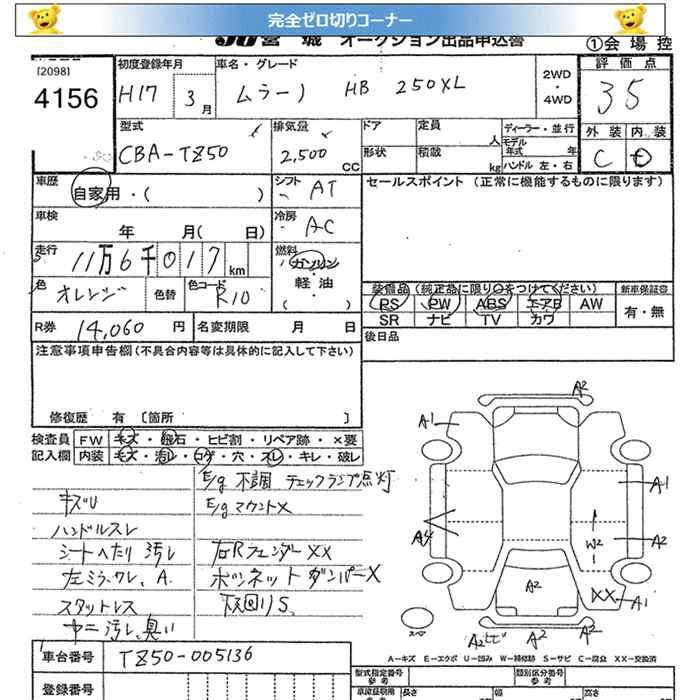 完全ゼロ切りコーナー
JU宮城 オークション出品申込書 ①会場控
[2098]
4156
初度登録年月 H17 3月
車名・グレード ムラーノ HB 250XL
2WD・4WD
評価点 35
外装 内装
C D
型式 CBA-TZ50
排気量 2,500 CC
ドア 定員 人
形状 積載 kg
ディーラー・並行
モデル年式 年
ハンドル 左・右
車歴 自家用・( )
シフト AT
セールスポイント (正常に機能するものに限ります)
車検 年 月( 日)
冷房 AC
走行 11万6千017km
燃料 ガソリン・軽油・( )
色 オレンジ 色替 色コード R10
装備品(純正品に限り○をつけてください)
新車保証書
PS PW ABS エアB AW 有・無
SR ナビ TV カワ
R券 14,060円 名変期限 月 日
後日品
注意事項申告欄(不具合内容等は具体的に記入して下さい)
修復歴 有 〔箇所 〕
検査員記入欄
FW キズ・飛石・ヒビ割・リペア跡・×要
内装 キズ・汚レ・コゲ・穴・スレ・キレ・破レ
E/g 不調 チェックランプ点灯
キズU E/gマウントX
ハンドルスレ
シートへたり 汚レ 右RフェンダーXX
左ミラーワレ、A. ボンネットダンパーX
スタットレス 下回りS.
汚し、臭い
A2
A1
A1
A4
W2
A2
A2
XX
A1
スペア
A2 A2
A-キズ E-エクボ U-凹み W-補修跡 S-サビ C-腐食 XX-交換済
車台番号 TZ50-005136
登録番号
型式指定番号 参考
類別区分番号 参考
長さ 幅 高さ